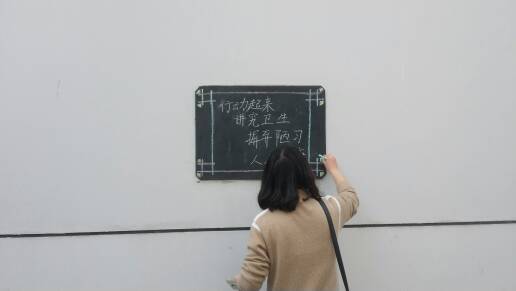 行动起来
讲究卫生
摒弃陋习
人